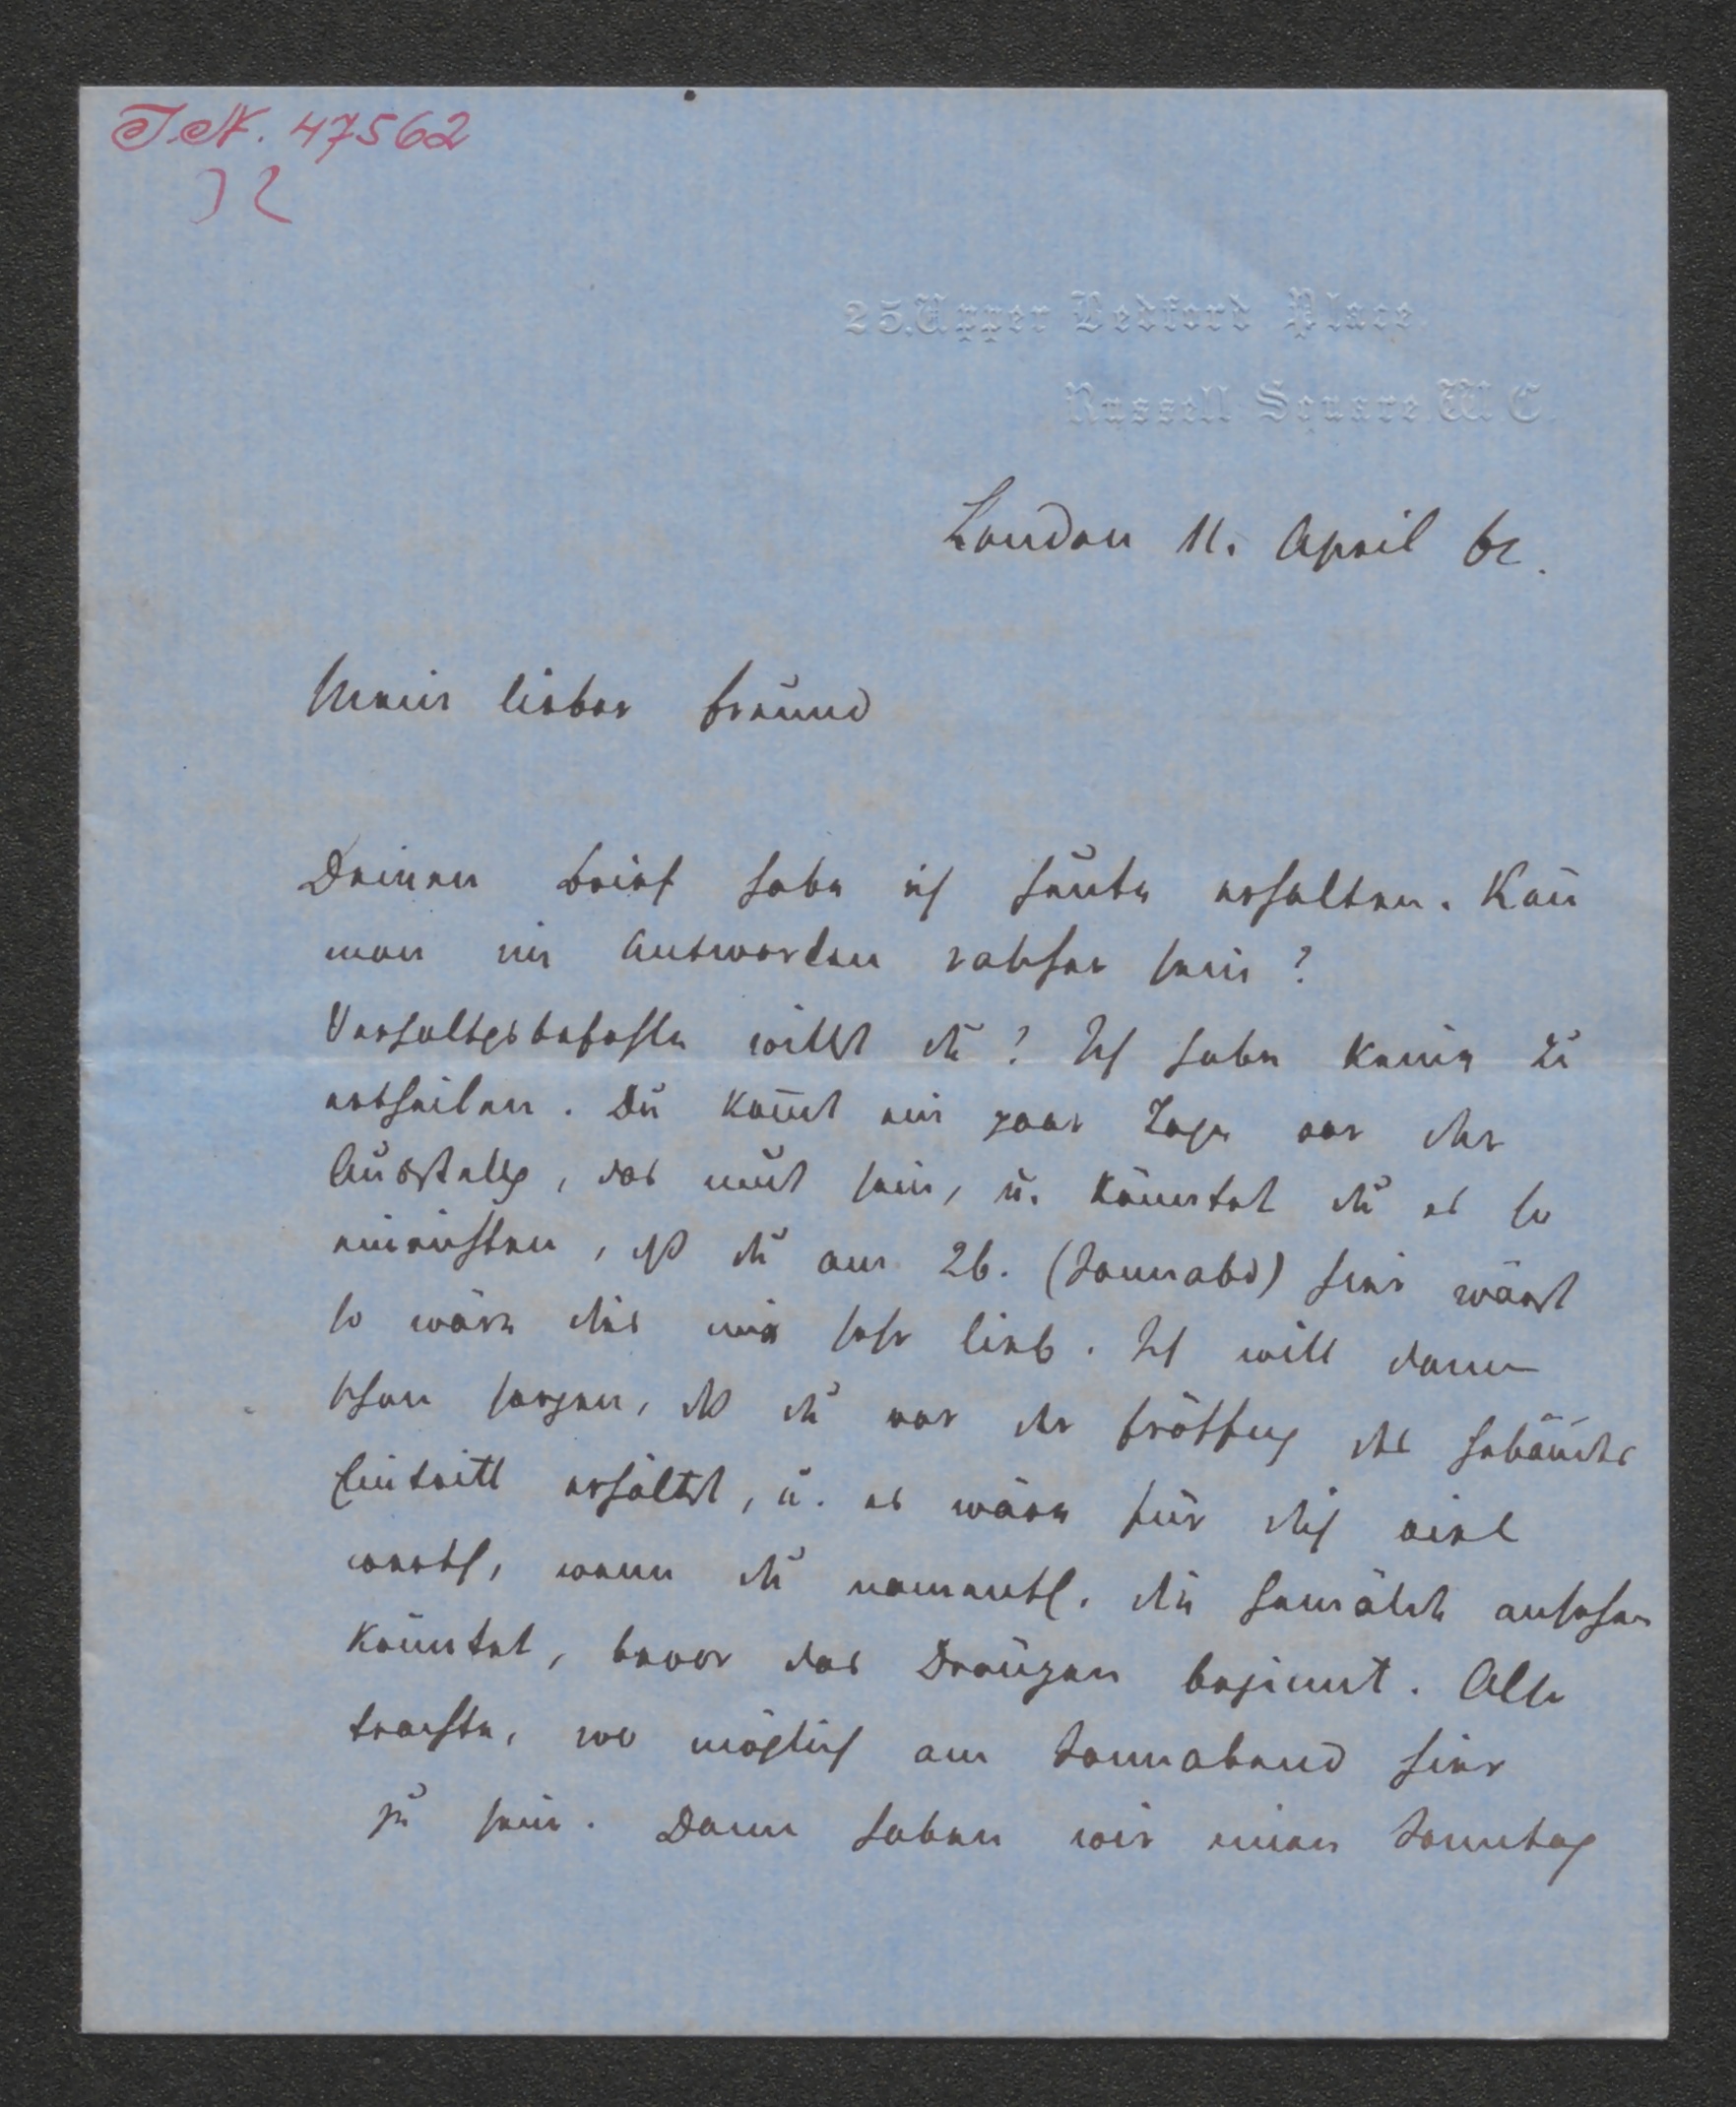 I.N. 47562
32
25. Upper Bedford Place.
Russell Square. W. C.
London 11. April 62.
Mein lieber Freund
Deinen Brief habe ich heute erhalten. Kan̄
man im Antworten rascher sein?
Verhaltgsbefehle willst du? Ich habe keine zu
ertheilen. Du kom̄st ein paar Tage vor der
Ausstellg, das muß sein, u. könntest du es so
einrichten, dß du am 26. (Sonnabd) hier wärst
so wäre dies mir sehr lieb. Ich will dann
schon sorgen, dß du vor der Eröffng des Gebäudes
Eintritt erhältst, u. es wäre für dich viel
werth, wenn du namentl. die Gemälde ansehen
könntest, bevor das Drängen beginnt. Also
trachte, wo möglich am Sonnabend hier
zu sein. Dann haben wir einen Sonntag